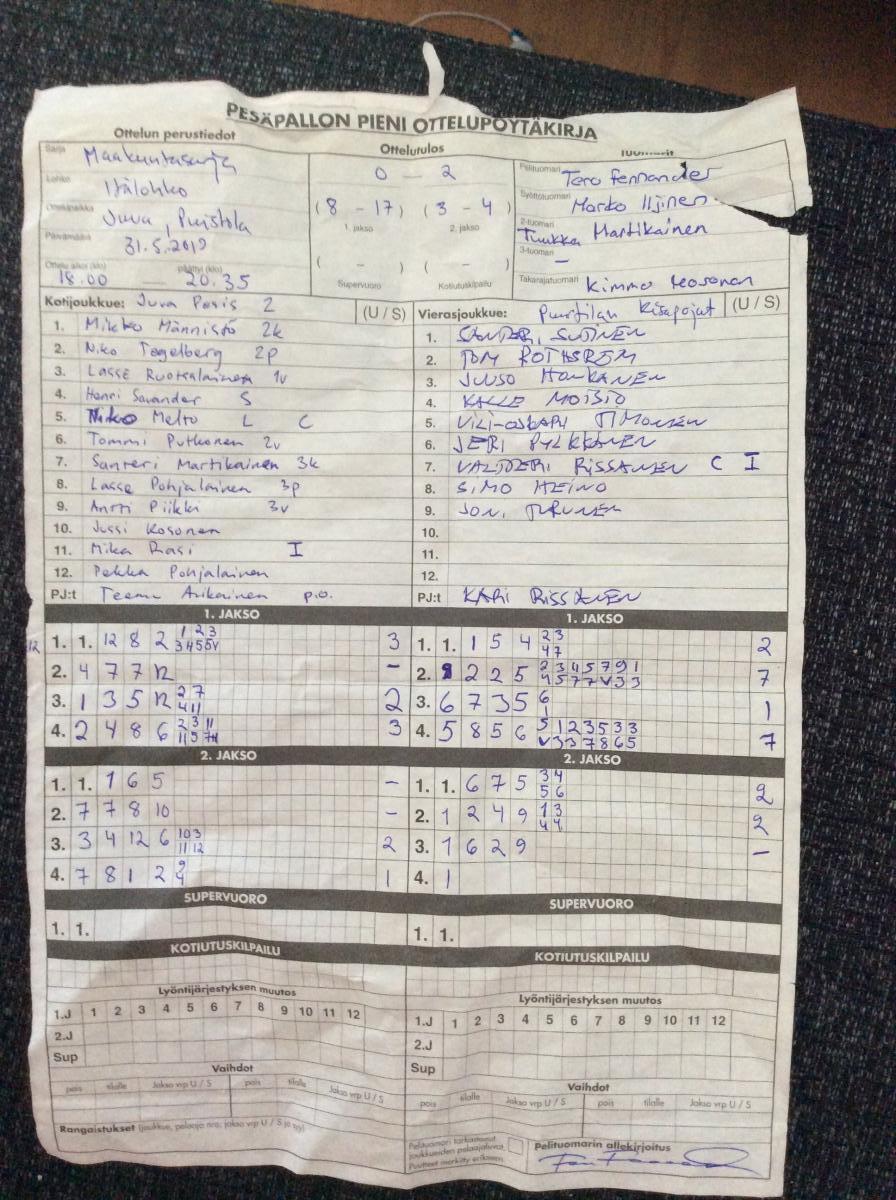 PESÄPALLON PIENI OTTELUPÖYTÄKIRJA
Ottelun perustiedot
Sarja Maakuntasarja
Lohko Itälohko
Ottelupaikka Juva, Puistola
Päivämäärä 31.5.2019
Ottelu alkoi (klo) päättyi (klo)
18.00 — 20.35
Ottelutulos
0 — 2
(8 - 17) (3 - 4)
1. jakso 2. jakso
( - ) ( - )
Supervuoro Kotiutuskilpailu
Tuomarit
Pelituomari Tero Fernander
Syöttötuomari Marko Iljinen
2-tuomari Tuukka Martikainen
3-tuomari –
Takarajatuomari Kimmo Kosonen
Kotijoukkue: Juva Pesis 2 (U / S)
1. Mikko Männistö 2k
2. Niko Tagelberg 2p
3. Lasse Ruotsalainen 1v
4. Henri Savander S
5. Niko Melto L C
6. Tommi Putkonen 2v
7. Santeri Martikainen 3k
8. Lasse Pohjalainen 3p
9. Antti Piikki 3v
10. Jussi Kosonen
11. Mika Rasi I
12. Pekka Pohjalainen
PJ:t Teemu Arikainen p.o.
Vierasjoukkue: Puurtilan Kisapojat (U / S)
1. SANTERI SUTINEN
2. TOM ROTHSRÖM
3. JUUSO HONKANEN
4. KALLE MOISIO
5. VILI-OSKARI TIMONEN
6. JERI PYLKKÄNEN
7. VALTTERI RISSANEN C I
8. SIMO HEINO
9. JONI TURUNEN
10.
11.
12.
PJ:t KARI RISSANEN
1. JAKSO
12 1. 1. 12 8 2 1 2 3 3
3 4 5 5 V
2. 4 7 7 12 –
3. 1 3 5 12 2 7 2
4 11
4. 2 4 8 6 2 3 11 3
11 5 7
1. JAKSO
1. 1. 1 5 4 2 3 2
4 7
2. 2 2 5 2 3 4 5 7 9 1 7
4 5 7 7 V 3 3
3. 6 7 3 5 6 1
1
4. 5 8 5 6 5 1 2 3 5 3 3 7
V 3 3 7 8 6 5
2. JAKSO
1. 1. 1 6 5 –
2. 7 7 8 10 –
3. 3 4 12 6 10 3 2
11 12
4. 7 8 1 2 9 1
4
2. JAKSO
1. 1. 6 7 5 3 4 2
5 6
2. 1 2 4 9 1 3 2
4 4
3. 1 6 2 9 –
4. 1
SUPERVUORO
1. 1.
SUPERVUORO
1. 1.
KOTIUTUSKILPAILU
KOTIUTUSKILPAILU
Lyöntijärjestyksen muutos
1.J 1 2 3 4 5 6 7 8 9 10 11 12
2.J
Sup
Lyöntijärjestyksen muutos
1.J 1 2 3 4 5 6 7 8 9 10 11 12
2.J
Sup
Vaihdot
pois tilalle Jakso vrp U / S pois tilalle Jakso vrp U / S
Vaihdot
pois tilalle Jakso vrp U / S pois tilalle Jakso vrp U / S
Rangaistukset (joukkue, pelaaja nro, jakso vrp U / S ja syy)
Pelituomari tarkastanut
joukkueiden pelaajaluvat.
Puutteet merkitty erikseen.
Pelituomarin allekirjoitus